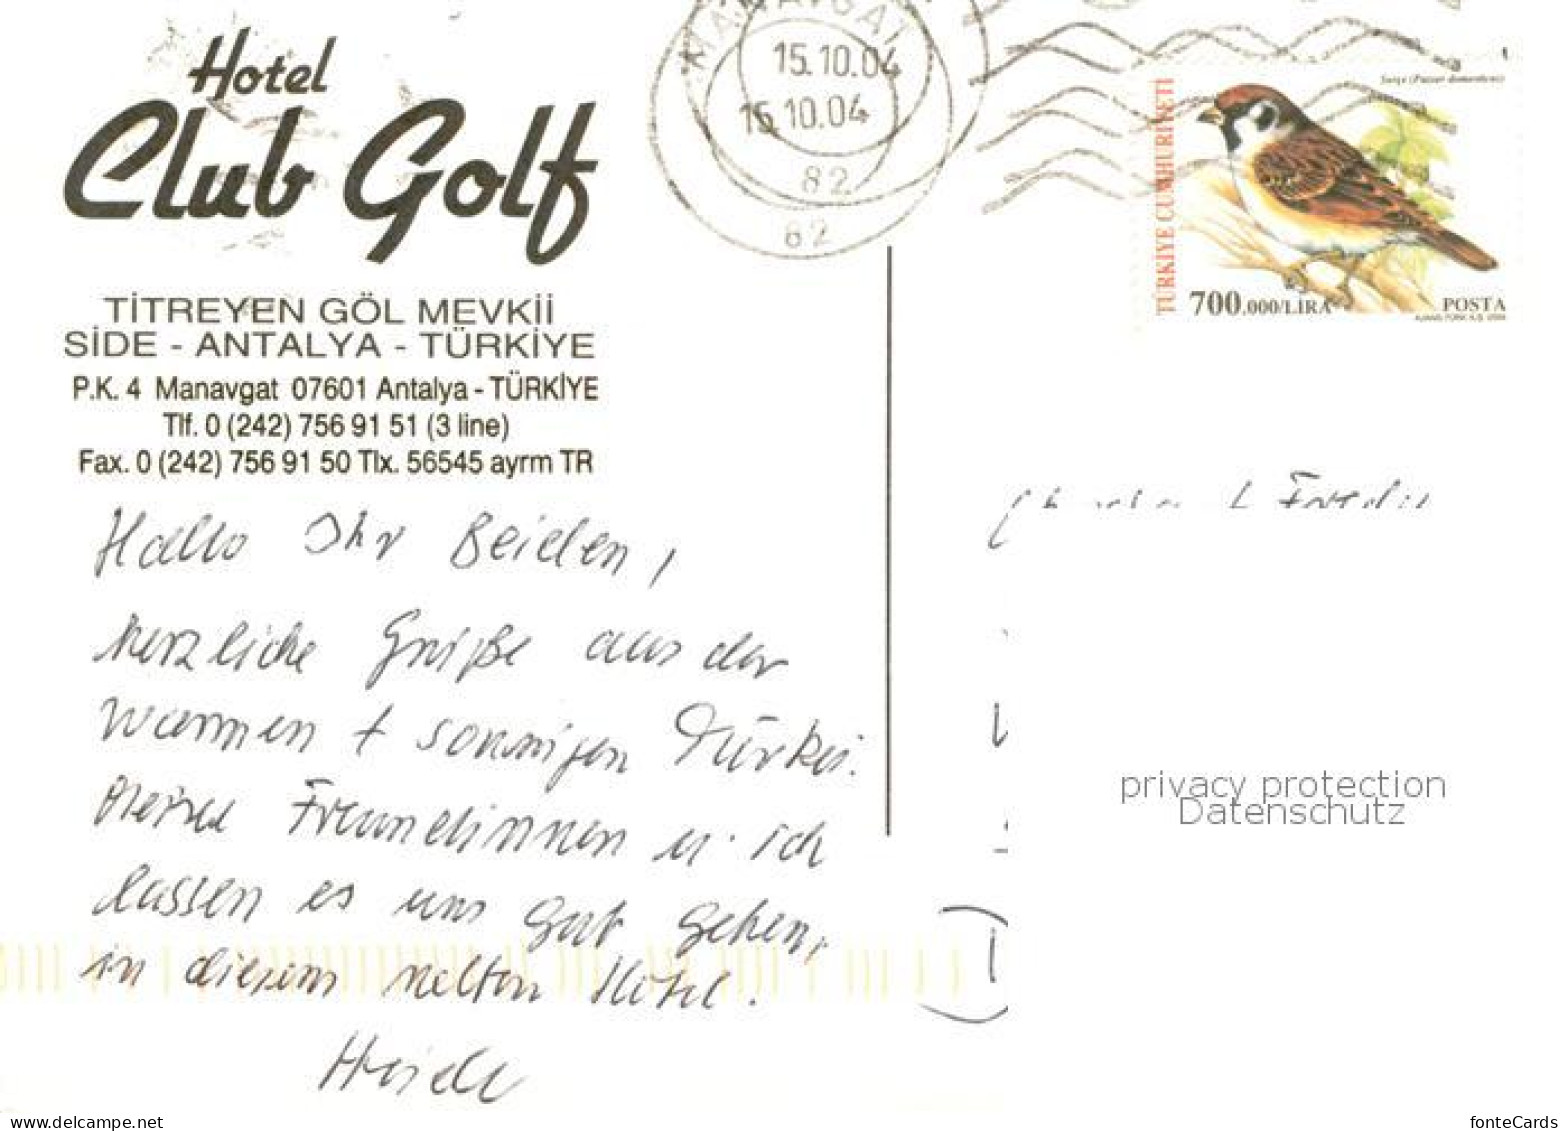 Hotel
Club Golf
TİTREYEN GÖL MEVKİİ
SİDE - ANTALYA - TÜRKİYE
P.K. 4 Manavgat 07601 Antalya - TÜRKİYE
Tlf. 0 (242) 756 91 51 (3 line)
Fax. 0 (242) 756 91 50 Tlx. 56545 ayrm TR
MANAVGAT
15.10.04
15.10.04
82
82
TÜRKİYE CUMHURİYETİ
Serçe (Passer domesticus)
700.000/LİRA
POSTA
Hallo Ihr Beiden,
herzliche Grüße aus der
warmen + sonnigen Türkei.
Meine Freundinnen u. ich
lassen es uns gut gehen,
in diesem netten Hotel.
Heide
privacy protection
Datenschutz
fonteCards